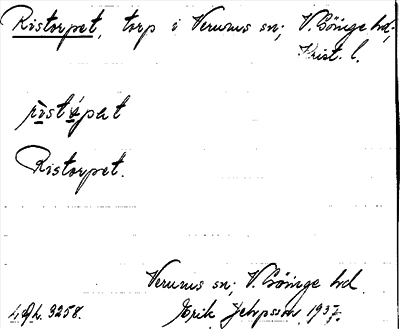 Ristorpet, torp i Verums sn; V. Göinge hd;
Krist. l.
ristópat
Ristorpet.
Verums sn; V. Göinge hd.
3258. Erik Jeppsson 1937.